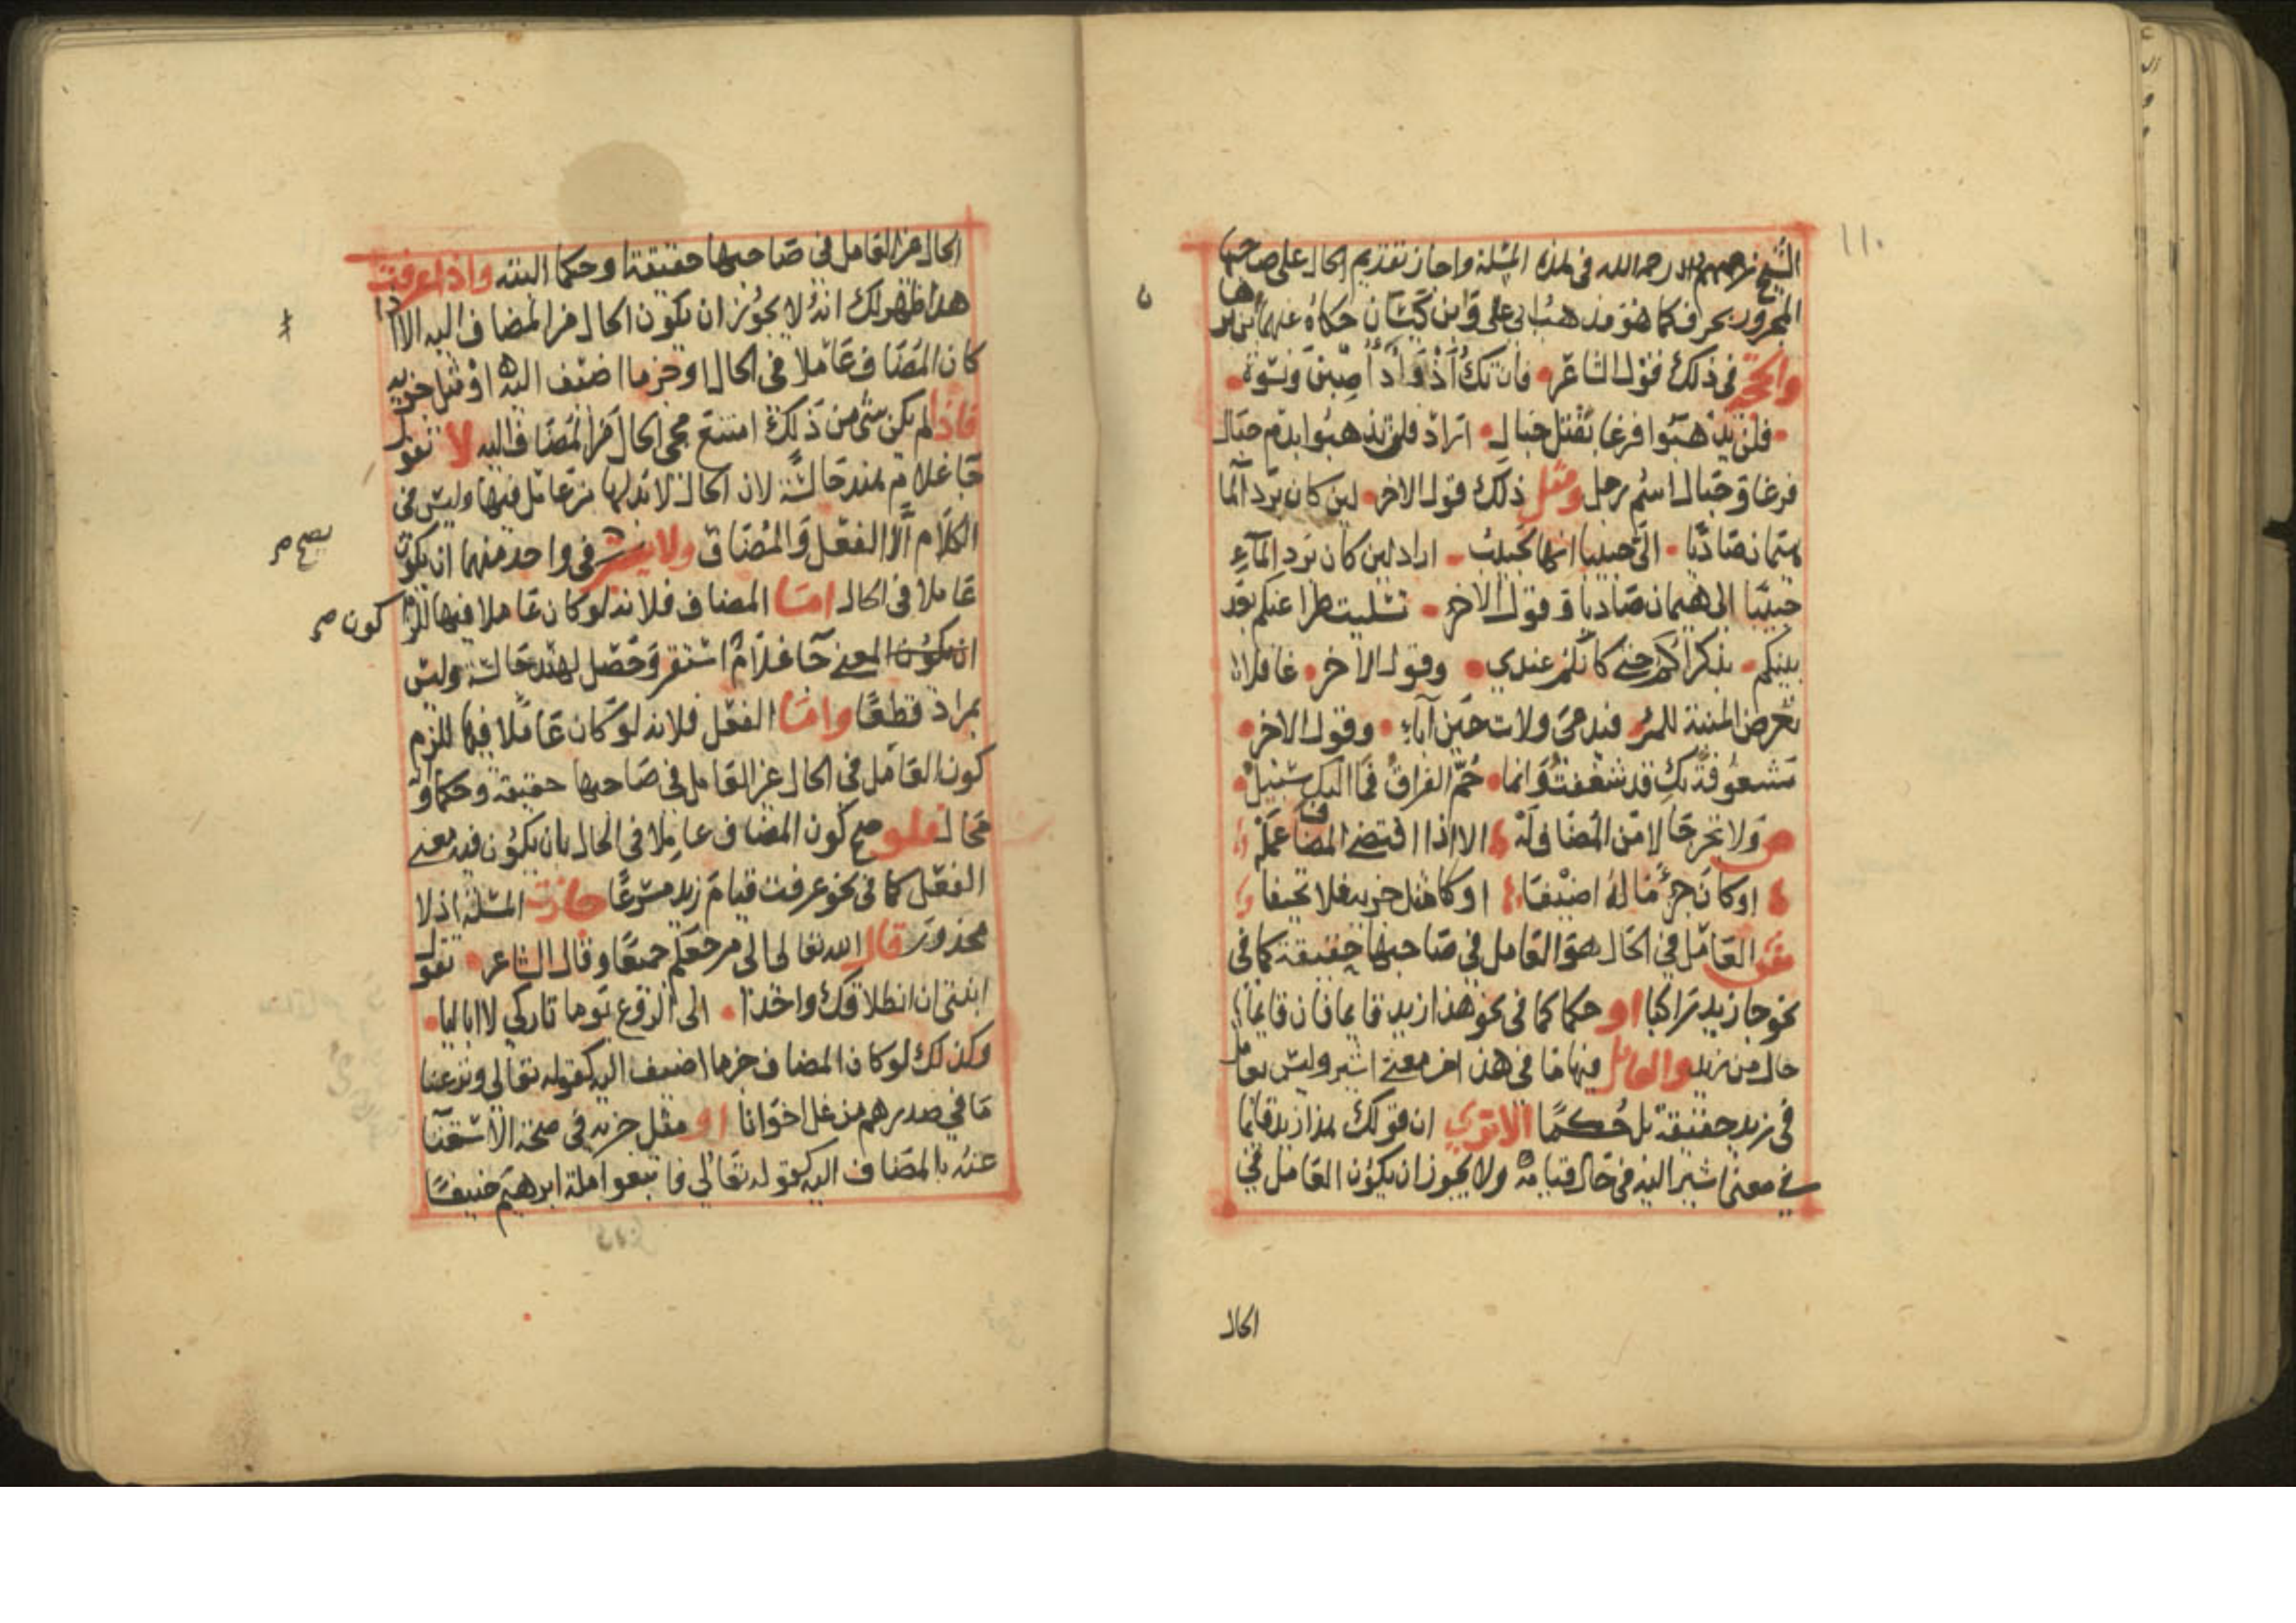 ١١٠
الشيخ رحمه الله في هذه المسئلة واجاز تقديم الحال على صاحبها
المجرور بحرف كما هو مذهب ابي على وابن كيسان حكاه عنهما ابن برهان
والحجة في ذلك قول الشاعر فان تك اذواد اصبن ونسوة
فلن يذهبوا فرغا بقتل حبال اراد فلن يذهبوا بدم حبال
فرغا وحبال اسم رجل ومثل ذلك قول الاخر لين كان برد المآ
هيمان صاديا الى حبيبا انها لحبيب اراد لين كان برد المآء
حبيبا الى هيمان صاديا وقول الاخر تسليت طرا عنكم بعد
بينكم بذكراكم حتى كانكم عندي وقول الاخر غافلا
تعرض المنية للمرء فيدعى ولات حين اباء وقول الاخر
مشغوفة بك قد شغفت وانما حم الفراق فما اليك سبيل
ص ولا تجز حالا من المضاف له الا اذا اقتضى المضاف عمله
او كان جزء ما له اضيفا او كا مثل جزيه فلا تحيفا
ش العامل في الحال هو العامل في صاحبها حقيقة كما في
نحو جا زيد راكبا او حكما كما في نحو هذا زيد قايما فان قايما
حال من زيد والعامل فيها ما في هذا من معنى اشير وليس بعامل
في زيد حقيقة بل حكما الا ترى ان قولك هذا زيد قائما
في معنى اشير اليه في حال قيامه ولا يجوز ان يكون العامل في
الحال
الحال غير العامل في صاحبها حقيقة او حكما البته واذا عرفت
هذا ظهر لك انه لا يجوز ان يكون الحال من المضاف اليه الا اذا
كان المضاف عاملا في الحال او جزء ما اضيف اليه او مثل جزيه
فاذا لم يكن شي من ذلك امتنع مجي الحال من المضاف اليه لا تقول
جا غلام هند جالسة لان الحال لا بد لها من عامل فيها وليس في
الكلام الا الفعل والمضاف ولا يصح في واحد منهما ان يكون
يصح صح
عاملا في الحال اما المضاف فلانه لو كان عاملا فيها للزم
كون صح
ان يكون المعنى جآ غلام استقر وحصل لهند جالسة وليس
بمراد قطعا واما الفعل فلانه لو كان عاملا فيها للزم
كون العامل في الحال غير العامل في صاحبها حقيقة وحكما وانه
محال فلو صح كون المضاف عاملا في الحال بان يكون فيه معنى
الفعل كما في نحو عرفت قيام زيد مسرعا جازت المسئلة اذ لا
محذور قال الله تعالى الى مرجعكم جميعا وقال الشاعر تقول
ابنتي ان انطلاقك واحدا الى الروع يوما تاركي لا اباليا
وكذلك لو كان المضاف جزء ما اضيف اليه كقوله تعالى ونزعنا
ما في صدورهم من غل اخوانا او مثل جزيه في صحة الاستغنا
عنه بالمضاف اليه كقوله تعالى فاتبعوا ملة ابرهيم حنيفا